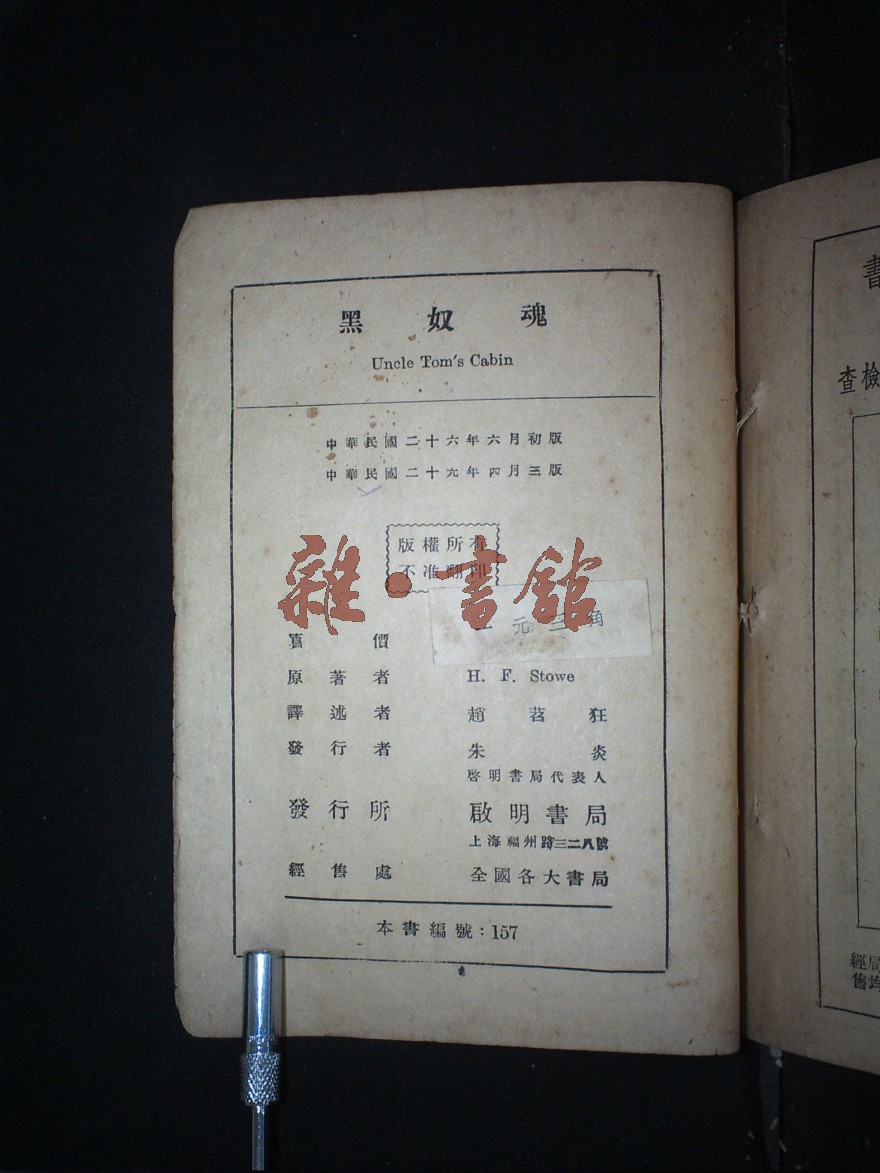 黑奴魂
Uncle Tom's Cabin
中華民國二十六年六月初版
中華民國二十九年四月三版
版權所有
不准翻印
雜·書館
實價 元三角
原著者 H. F. Stowe
譯述者 趙苕狂
發行者 朱炎
啓明書局代表人
發行所 啟明書局
上海福州路三二八號
經售處 全國各大書局
本書編號：157
書
查檢
經局
售均